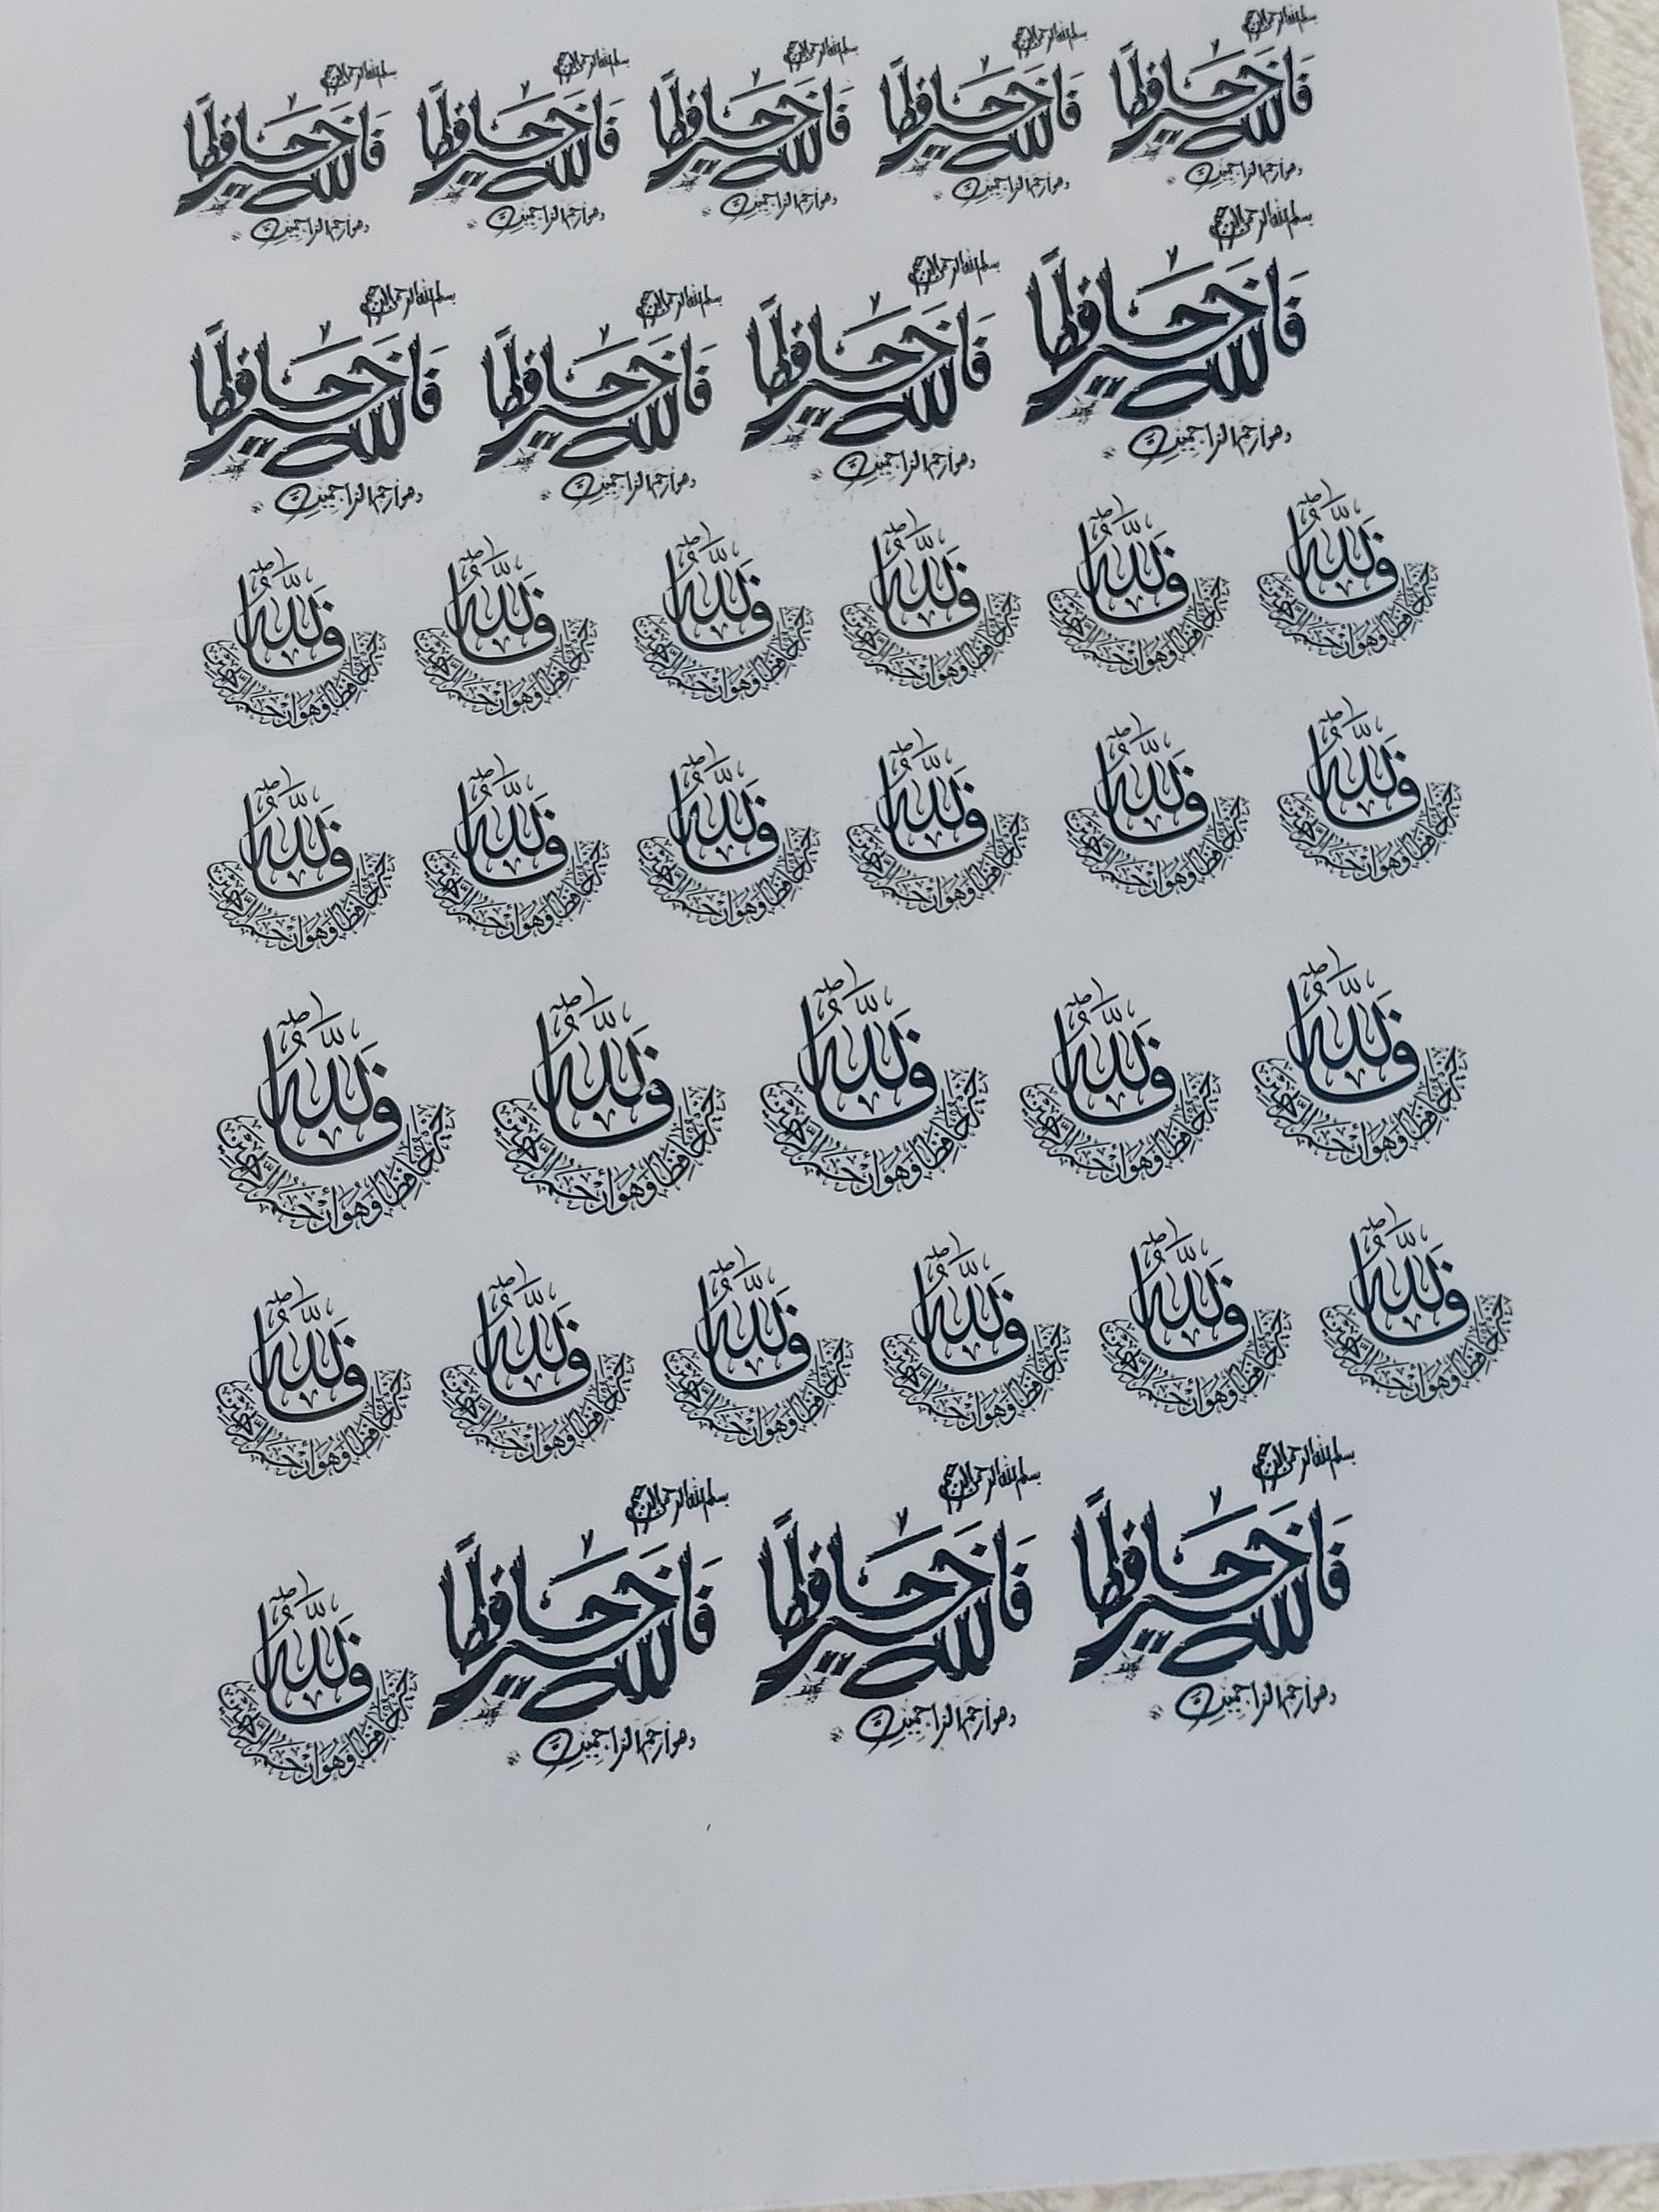 بسم الله الرحمن الرحيم بسم الله الرحمن الرحيم بسم الله الرحمن الرحيم بسم الله الرحمن الرحيم بسم الله الرحمن الرحيم
فالله خير حافظًا فالله خير حافظًا فالله خير حافظًا فالله خير حافظًا فالله خير حافظًا
وهو أرحم الراحمين وهو أرحم الراحمين وهو أرحم الراحمين وهو أرحم الراحمين وهو أرحم الراحمين
بسم الله الرحمن الرحيم بسم الله الرحمن الرحيم بسم الله الرحمن الرحيم بسم الله الرحمن الرحيم
فالله خير حافظًا فالله خير حافظًا فالله خير حافظًا فالله خير حافظًا
وهو أرحم الراحمين وهو أرحم الراحمين وهو أرحم الراحمين وهو أرحم الراحمين
فالله فالله فالله فالله فالله فالله
خير حافظا وهو أرحم الراحمين خير حافظا وهو أرحم الراحمين خير حافظا وهو أرحم الراحمين خير حافظا وهو أرحم الراحمين خير حافظا وهو أرحم الراحمين خير حافظا وهو أرحم الراحمين
فالله فالله فالله فالله فالله فالله
خير حافظا وهو أرحم الراحمين خير حافظا وهو أرحم الراحمين خير حافظا وهو أرحم الراحمين خير حافظا وهو أرحم الراحمين خير حافظا وهو أرحم الراحمين خير حافظا وهو أرحم الراحمين
فالله فالله فالله فالله فالله
خير حافظا وهو أرحم الراحمين خير حافظا وهو أرحم الراحمين خير حافظا وهو أرحم الراحمين خير حافظا وهو أرحم الراحمين خير حافظا وهو أرحم الراحمين
فالله فالله فالله فالله فالله فالله
خير حافظا وهو أرحم الراحمين خير حافظا وهو أرحم الراحمين خير حافظا وهو أرحم الراحمين خير حافظا وهو أرحم الراحمين خير حافظا وهو أرحم الراحمين خير حافظا وهو أرحم الراحمين
بسم الله الرحمن الرحيم بسم الله الرحمن الرحيم بسم الله الرحمن الرحيم
فالله خير حافظًا فالله خير حافظًا فالله خير حافظًا
وهو أرحم الراحمين وهو أرحم الراحمين وهو أرحم الراحمين
فالله
خير حافظا وهو أرحم الراحمين